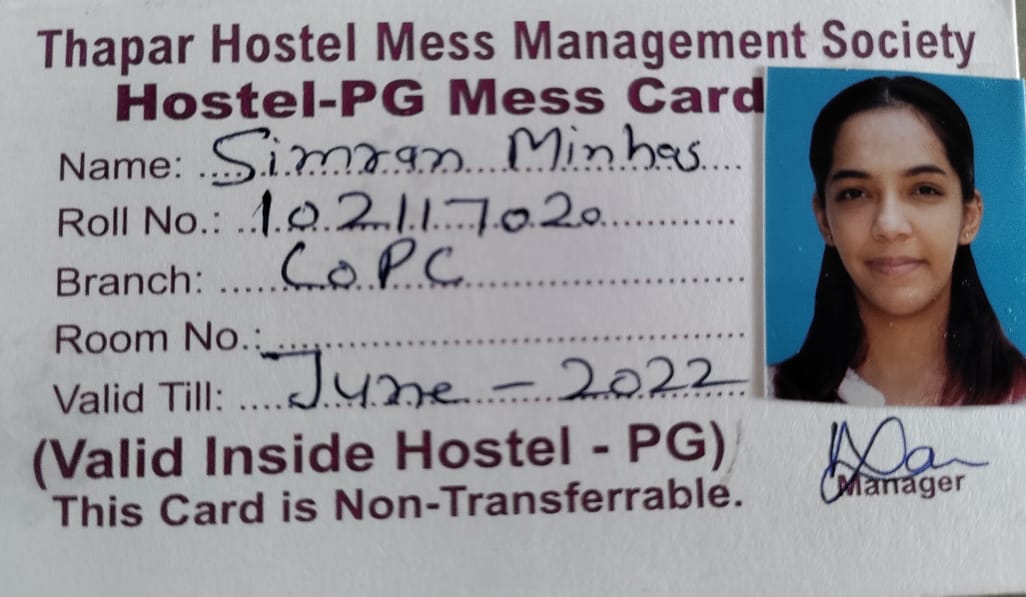 Thapar Hostel Mess Management Society
Hostel-PG Mess Card
Name: Simran Minhas
Roll No.: 102117020
Branch: CoPC
Room No.:
Valid Till: June - 2022
(Valid Inside Hostel - PG)
This Card is Non-Transferrable.
Manager